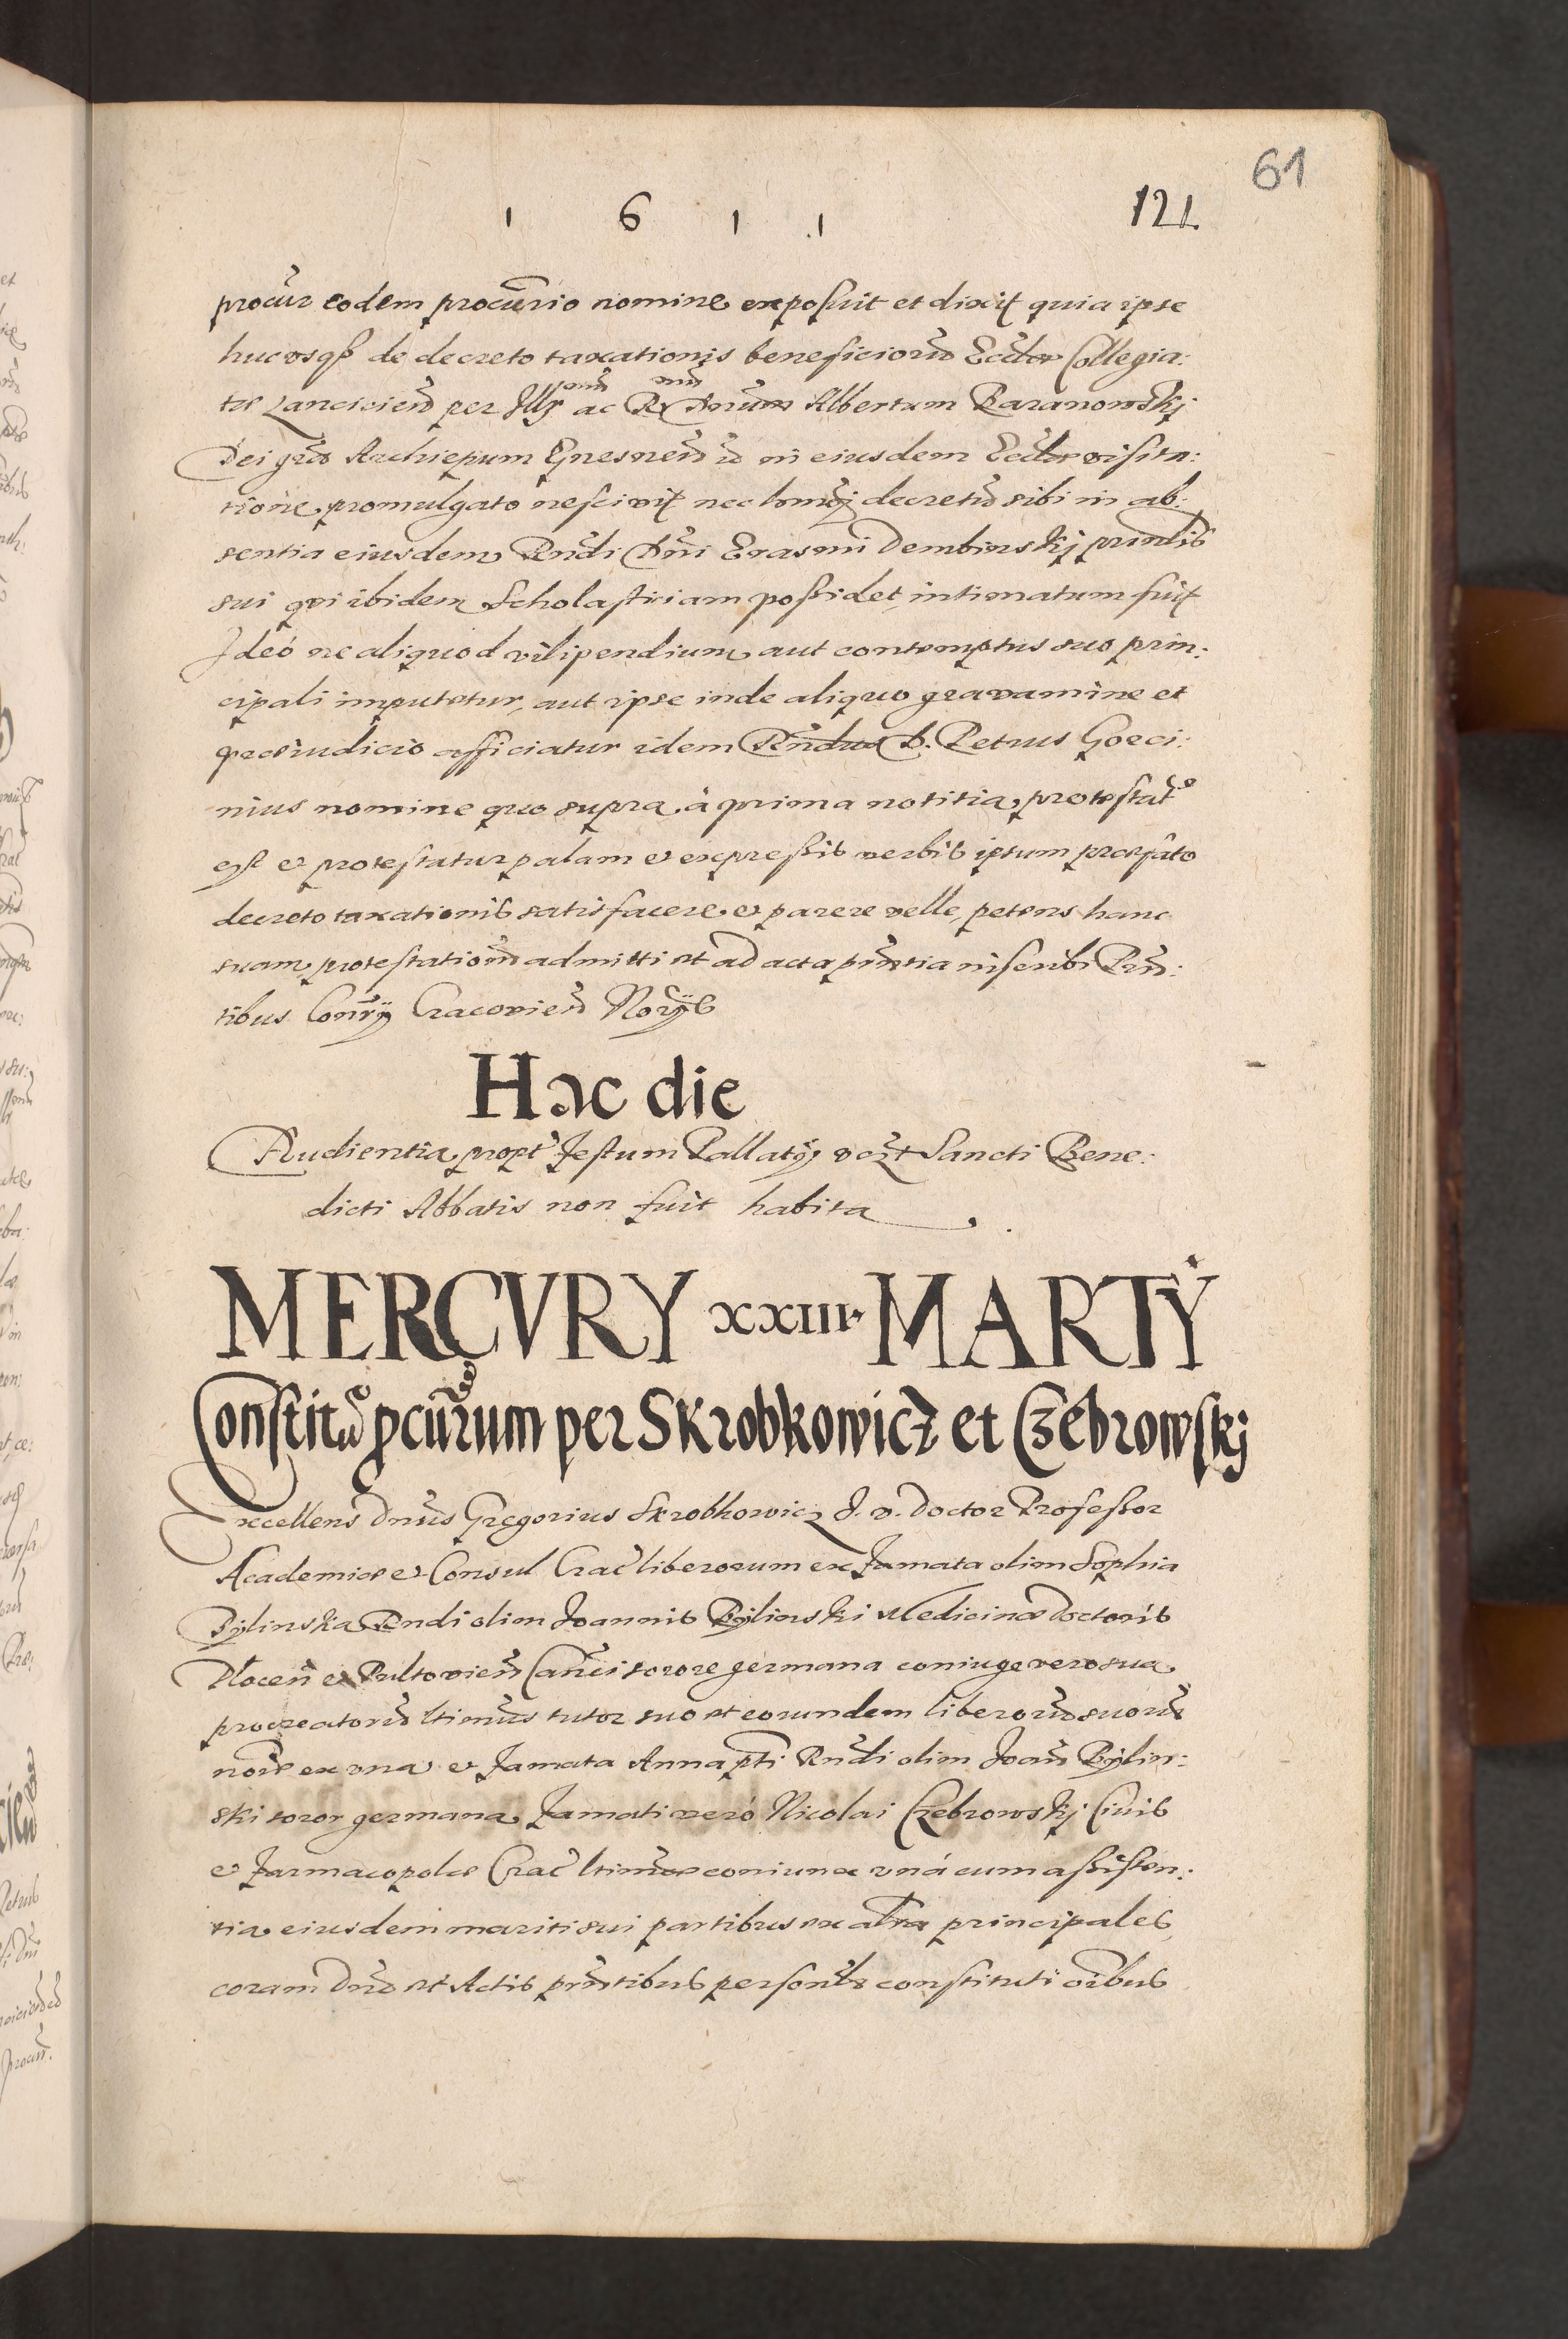 61
1 6 1 1 121
procur̃ eodem procũrio nomine exposuit et dixit quia ipse
hucusq̃ de decreto taxationis beneficiorũ Eccl̃ae Collegia:
tae Lanciciẽn per Illr̃ ac R Dnũm Albertum Baranowskj
Dei grã Archiepum Gnesneñ in eiusdem Eccl̃ae visita:
tione promulgato nescivit nec decretũ sibi in ab:
sentia eiusdem Rñdi Dñi Erasmi Dembinskj prinlis
sui qui ibidem Scholastriam possidet, intimatum fuit
Ideó ne aliquod vilipendium aut contemptus suo prin:
cipali imputetur, aut ipse inde aliquo gravamine et
praeiudicio afficiatur idem Rñdus D. Petrus Goreci:
nius nomine quo supra á prima notitia, protestatꝰ
est et protestatur palam et expressis verbis ipsum praefato
decreto taxationis satisfacere et parere velle, petens hanc
suam protestationẽ admitti et ad acta pñtia inscribi Prñ:
tibus Conrÿ Cracovieñ Norÿs
Hac die
Audientia propt' Festum Pallatÿ vczt Sancti Bene:
dicti Abbatis non fuit habita
MERCVRY XXIII MARTŸ
Constitũ pcũrum per Skrobkowicz et Czebrowskj
Excellens Dnũs Gregorius Skrobkowicz J. V. Doctor Professor
Academiae et Consul Crac̃ liberorum ex Famata olim Sophia
Bÿlinska Rndi olim Joannis Bÿlinski Medicinae Doctoris
Ploceñ et Pultovieñ Cañci sorore germana coniuge vero sua
procreatorũ ltimũs tutor suo et eorundem liberorũ suorũ
noĩe ex una et Famata Anna pti Rñdi olim Joañ Bÿlin:
ski soror germana, Famati veró Nicolai Czebrowskj Civis
et Farmacopolae Crac̃ ltimae coniunx uná cum assisten:
tia eiusdem mariti sui partibus ex altra principales
coram Dnõ et Actis pñtibus personl̃r constituti oĩbus